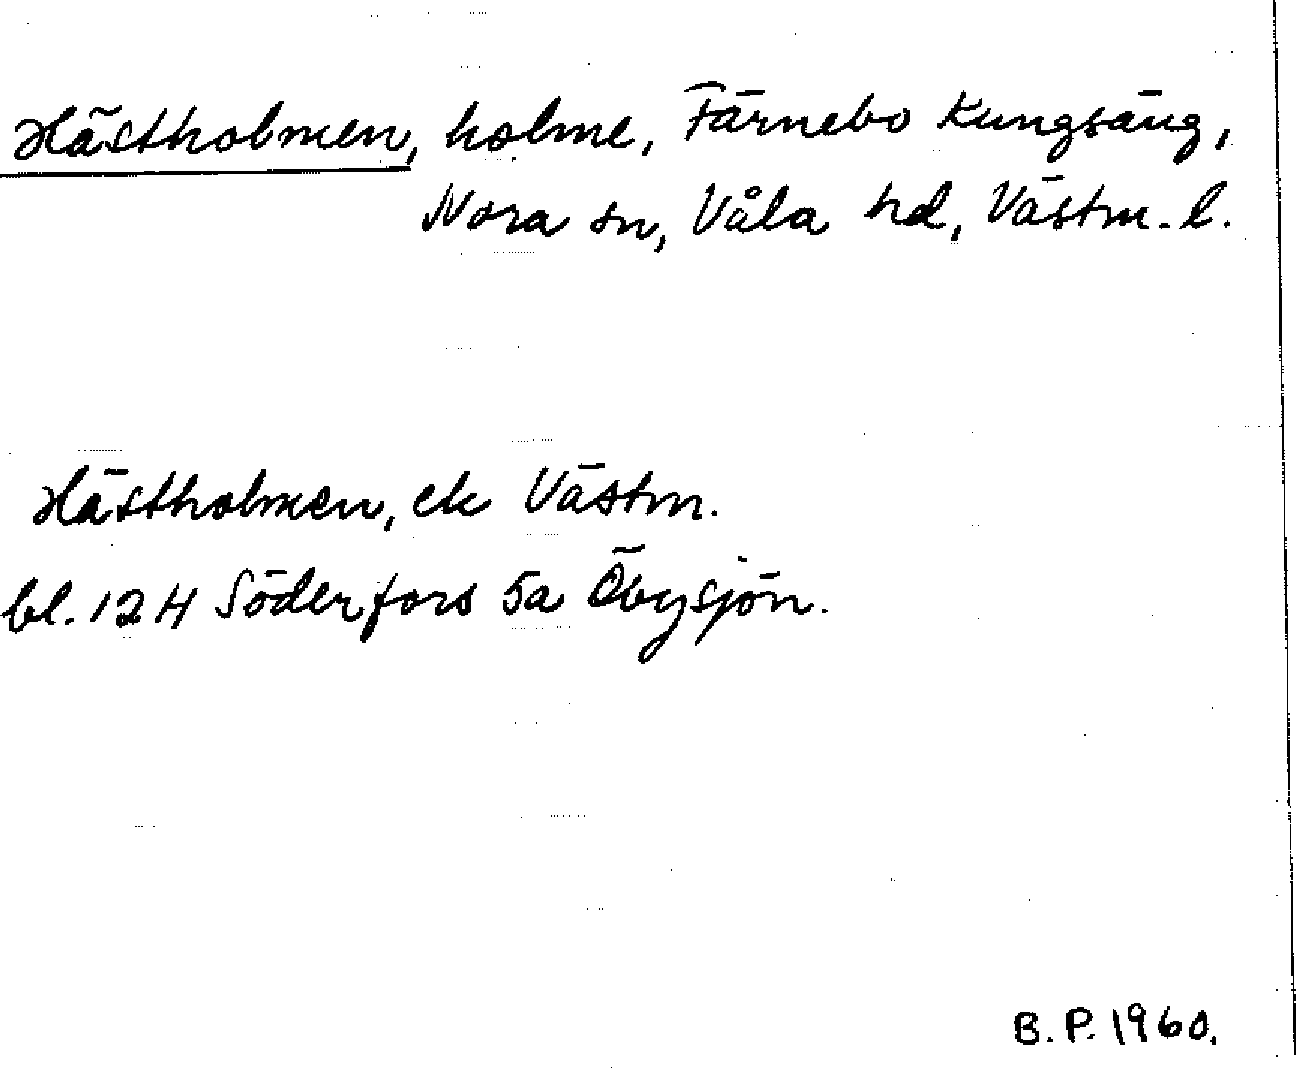 Hästholmen, holme, Färnebo Kungsäng,
Nora sn, Våla hd, Västm. l.
Hästholmen, ek Västm.
bl. 12H Söderfors 5a Öbysjön.
B.P. 1960.